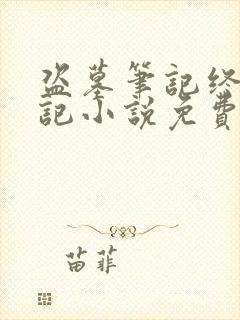 盗墓筆記终
記小説免費
苗菲